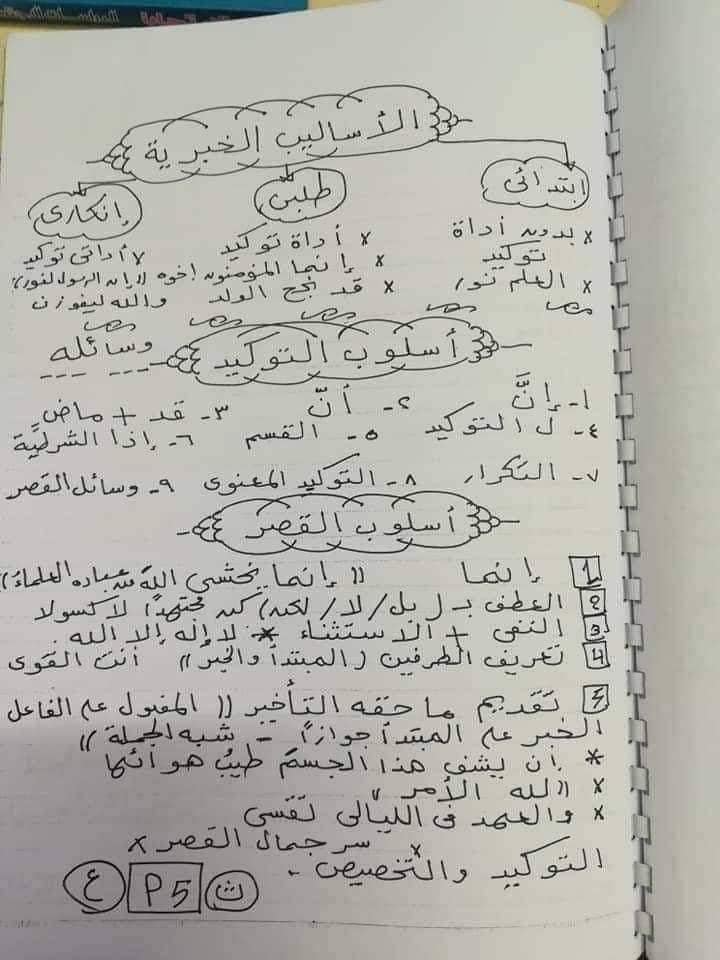 الأساليب الخبرية
ابتدائى
طلبى
إنكارى
x بدون أداة توكيد
x العلم نور
x أداة توكيد
x إنما المؤمنون إخوه
x قد نجح الولد
x أداتى توكيد
((إن الرسول لنور))
والله ليفوزن
أسلوب التوكيد وسائله
١- إنَّ ٢- أنّ ٣- قد + ماضٍ
٤- ل التوكيد ٥- القسم ٦- إذا الشرطية
٧- التكرار ٨- التوكيد المعنوى ٩- وسائل القصر
أسلوب القصر
1 إنما ((إنما يخشى الله من عباده العلماءُ))
2 العطف بـ (بل/لا/لكن) كن مجتهدًا لا كسولا
3 النفى + الاستثناء * لا إله إلا الله
4 تعريف الطرفين (المبتدأ والخبر)) أنت القوى
5 تقديم ما حقه التأخير (( المفعول على الفاعل
الخبر على المبتدأ جوازاً - شبه الجملة))
* إن يشفِ هذا الجسمَ طيبُ هوائها
x ((لله الأمر))
x والعمر فى الليالى تقسى
سر جمال القصر x
التوكيد والتخصيص.
ث P5 ع